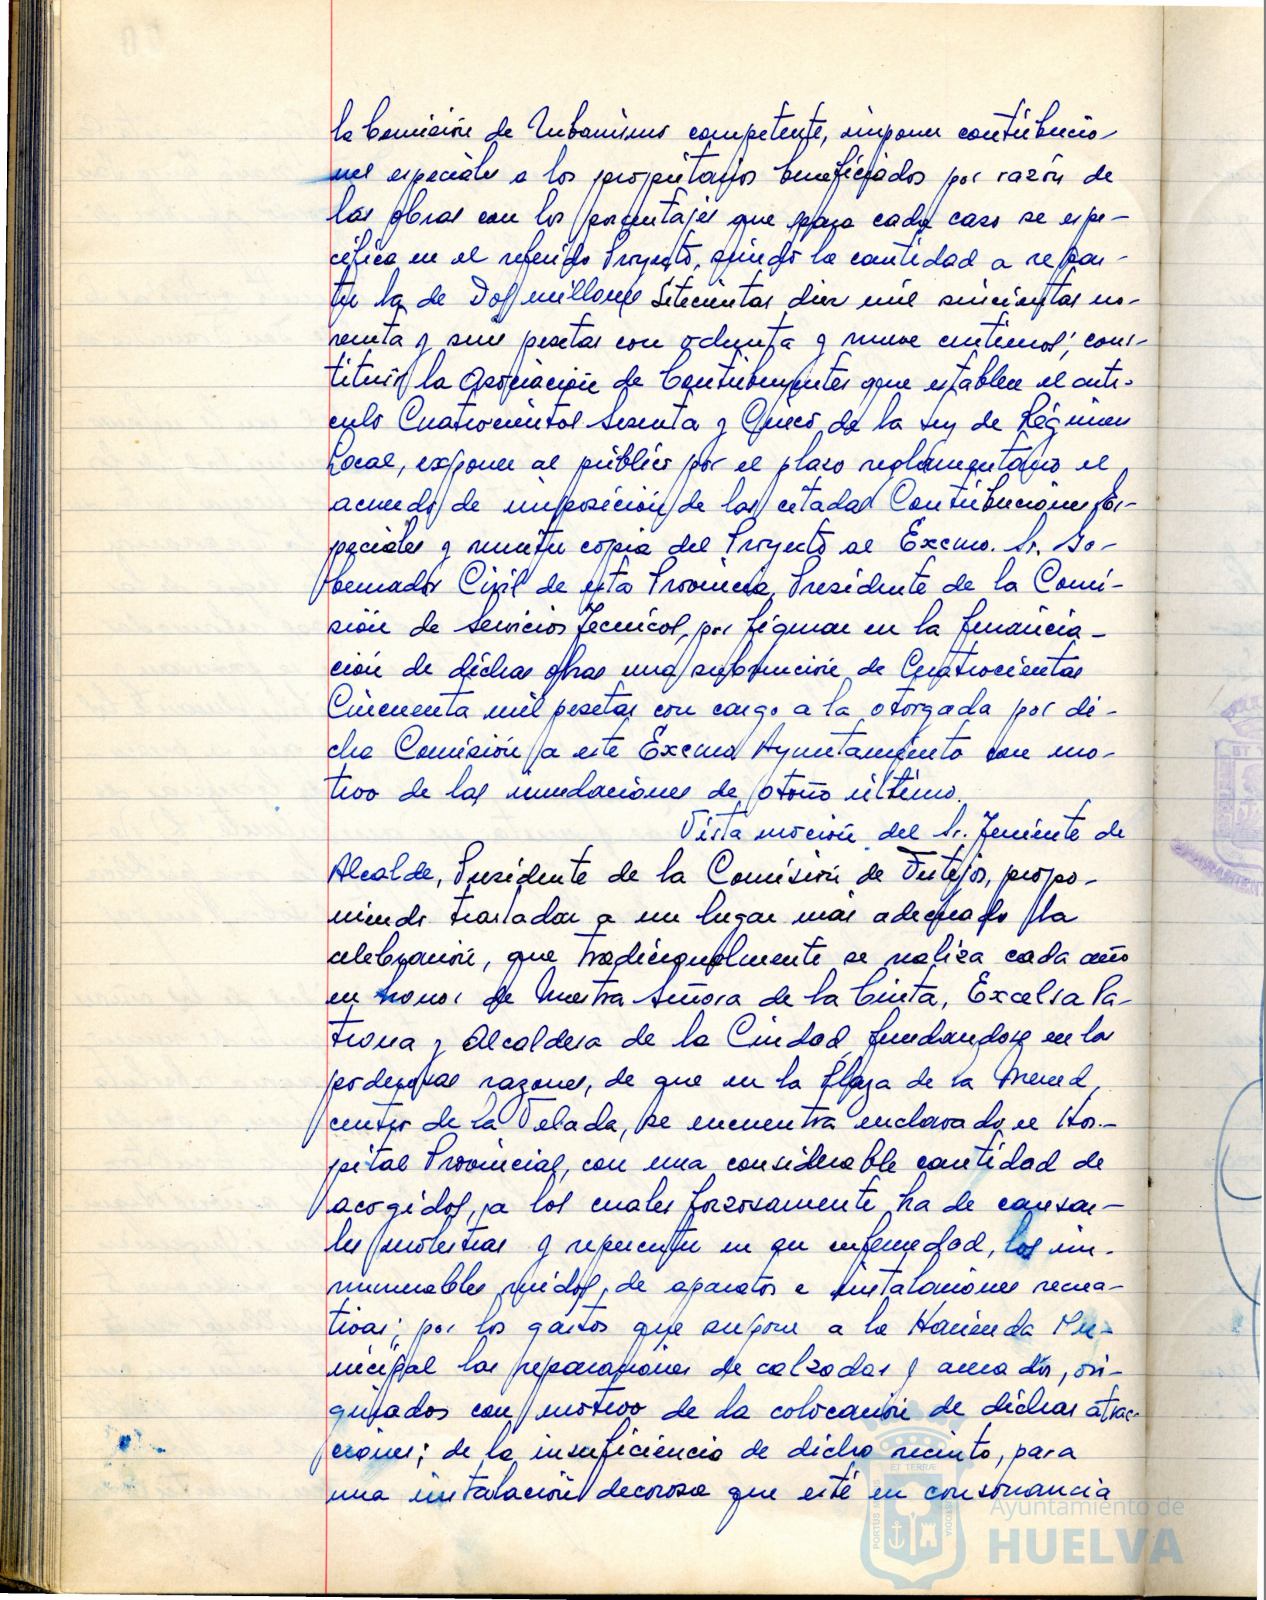 la Comisión de Urbanismo competente, imponer contribucio-
nes especiales a los propietarios beneficiados por razón de
las obras con los porcentajes que para cada caso se espe-
cifica en el referido Proyecto, siendo la cantidad a repar-
tir la de Dos millones Setecientas diez mil quinientas no-
venta y seis pesetas con ochenta y nueve centimos; cons-
tituir la Asociación de Contribuyentes que establece el arti-
culo Cuatrocientos Sesenta y Cinco de la Ley de Régimen
Local, exponer al público por el plazo reglamentario el
acuerdo de imposición de las citadas Contribuciones Es-
peciales y remitir copia del Proyecto al Excmo. Sr. Go-
bernador Civil de esta Provincia, Presidente de la Comi-
sión de Servicios Técnicos, por figurar en la financia-
ción de dichas obras una subvención de Cuatrocientas
Cincuenta mil pesetas con cargo a la otorgada por di-
cha Comisión a este Excmo Ayuntamiento con mo-
tivo de las inundaciones de otoño último.
Vista moción del Sr. Teniente de
Alcalde, Presidente de la Comisión de Festejos, propo-
niendo trasladar a un lugar más adecuado la
celebración, que tradicionalmente se realiza cada año
en honor de Nuestra Señora de la Cinta, Excelsa Pa-
trona y Alcaldesa de la Ciudad, fundandose en las
poderosas razones, de que en la Plaza de la Merced,
centro de la Velada, se encuentra enclavado el Hos-
pital Provincial, con una considerable cantidad de
acogidos, a los cuales forzosamente ha de causar-
les molestias y repercutir en su enfermedad, los in-
numerables ruidos, de aparatos e instalaciones recrea-
tivas; por los gastos que supone a la Hacienda Mu-
nicipal las reparaciones de calzadas y acerados, ori-
ginados con motivo de la colocación de dichas atrac-
ciones; de la insuficiencia de dicho recinto, para
una instalación decorosa que esté en consonancia
Ayuntamiento de
HUELVA